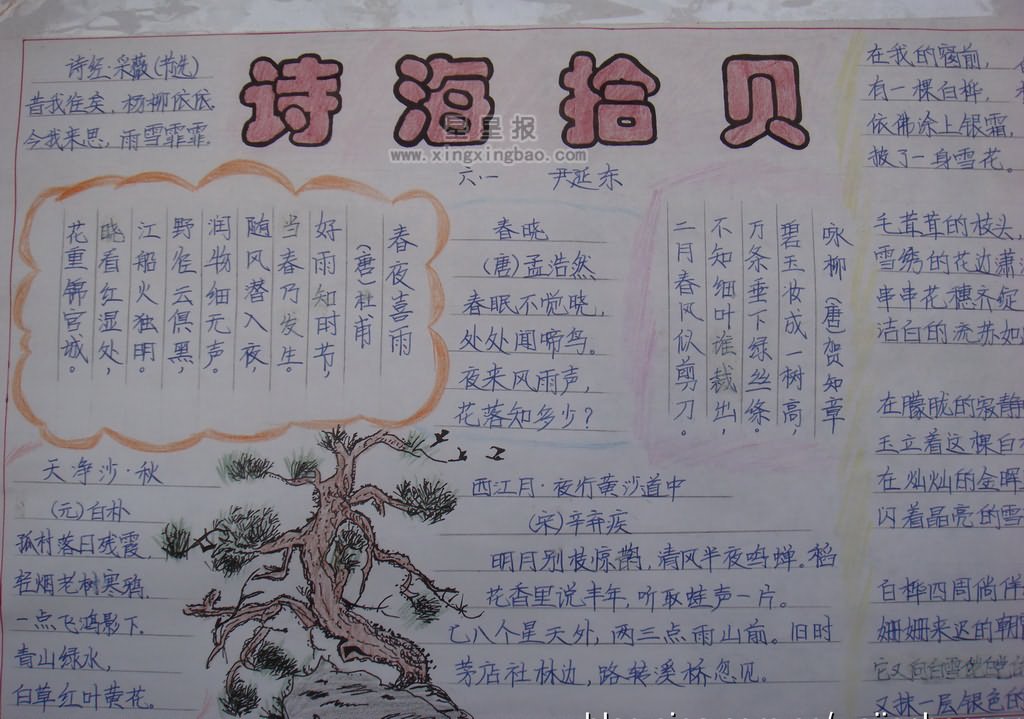 诗海拾贝
星星报
www.xingxingbao.com
六·一 尹延东
诗经.采薇(节选)
昔我往矣,杨柳依依.
今我来思,雨雪霏霏.
春夜喜雨
(唐)杜甫
好雨知时节,
当春乃发生。
随风潜入夜,
润物细无声。
野径云俱黑,
江船火独明。
晓看红湿处,
花重锦官城。
春晓
(唐)孟浩然
春眠不觉晓,
处处闻啼鸟。
夜来风雨声,
花落知多少?
咏柳(唐)贺知章
碧玉妆成一树高,
万条垂下绿丝条。
不知细叶谁裁出,
二月春风似剪刀。
天净沙·秋
(元)白朴
孤村落日残霞,
轻烟老树寒鸦.
一点飞鸿影下.
青山绿水,
白草红叶黄花。
西江月·夜行黄沙道中
(宋)辛弃疾
明月别枝惊鹊,清风半夜鸣蝉。稻
花香里说丰年,听取蛙声一片。
七八个星天外,两三点雨山前。旧时
茅店社林边,路转溪桥忽见。
在我的窗前,
有一棵白桦,
依佛涂上银霜,
披了一身雪花。
毛茸茸的枝头,
雪绣的花边潇
串串花穗齐绽
洁白的流苏如
在朦胧的寂静
玉立着这棵白
在灿灿的金晖
闪着晶亮的雪
白桦四周徜徉
姗姗来迟的朝
它又向白雪皑皑的
又抹一层银色的